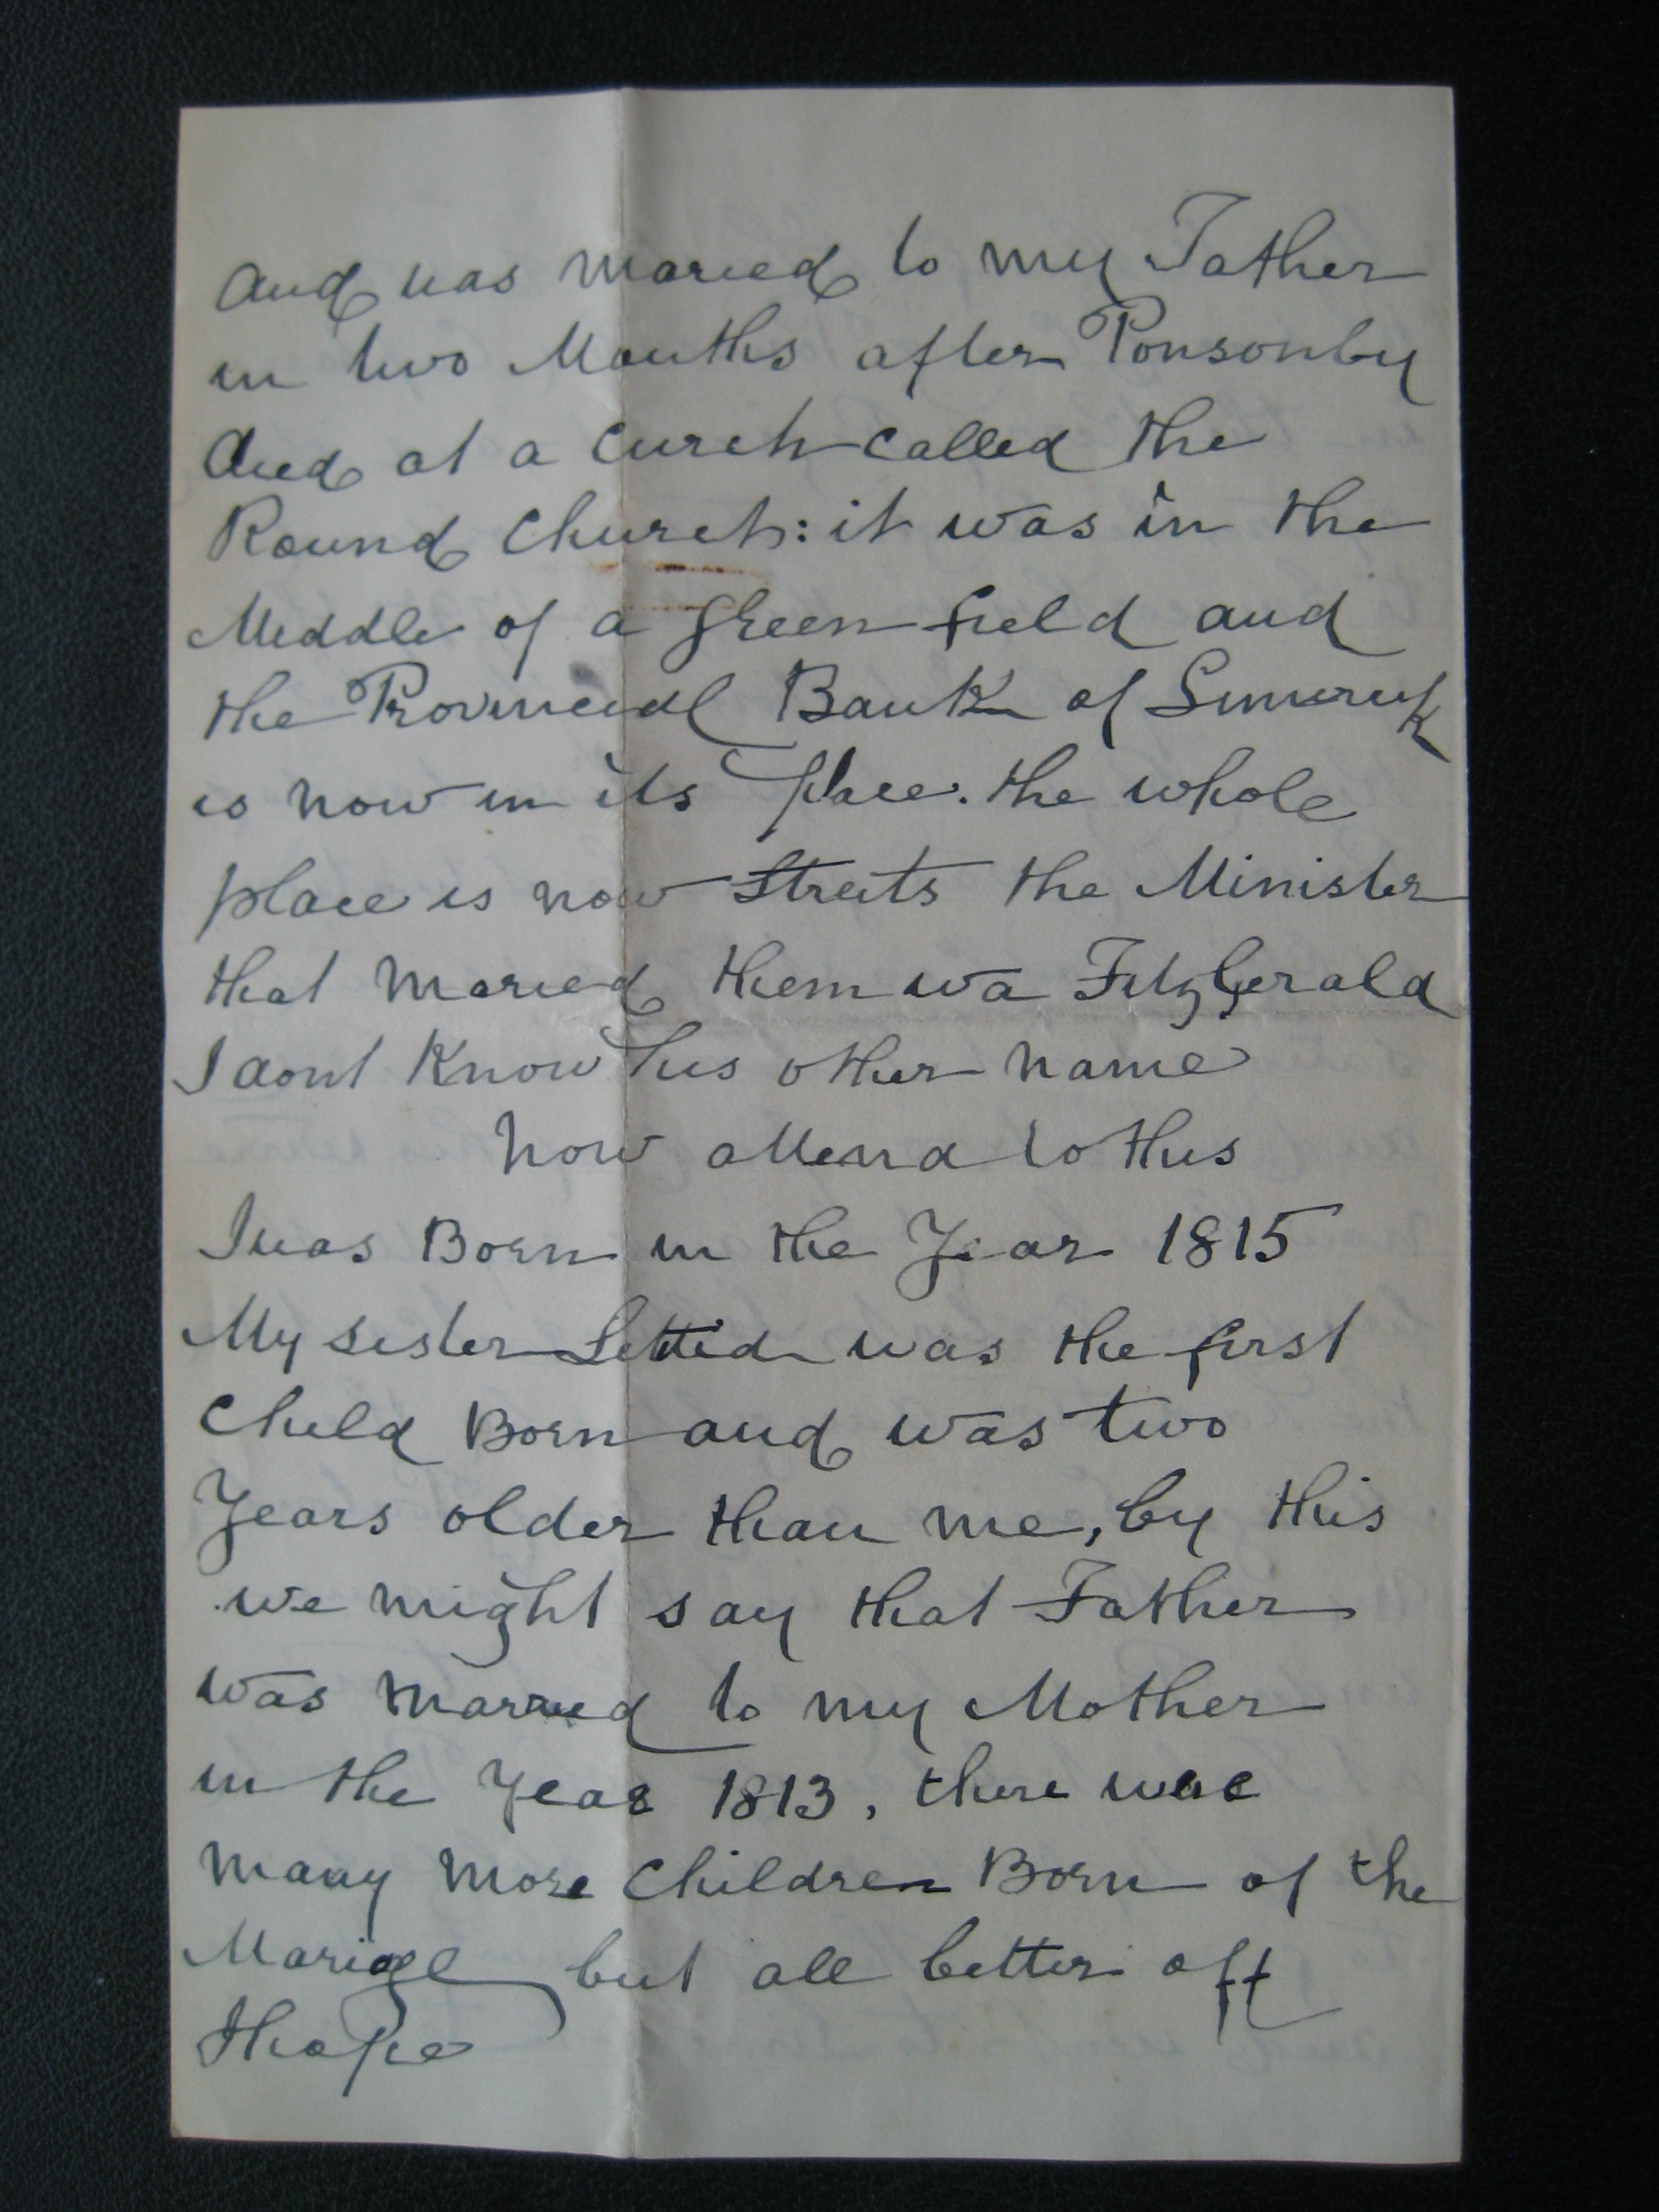 and was maried to my Father
in two Months after Ponsonby
died at a Curch called the
Round Church: it was in the
Meddle of a Green field and
the Provincial Bank of Limerick
is now in its place. the whole
place is now Streets the Minister
that maried them wa FitzGerald
I dont Know his other name
now attend to this
I was Born in the Year 1815
My sister was the first
Child Born and was two
Years older than me, by this
we might say that Father
was married to my Mother
in the Year 1813, there was
many more Children Born of the
Mariage but all better off
I hope